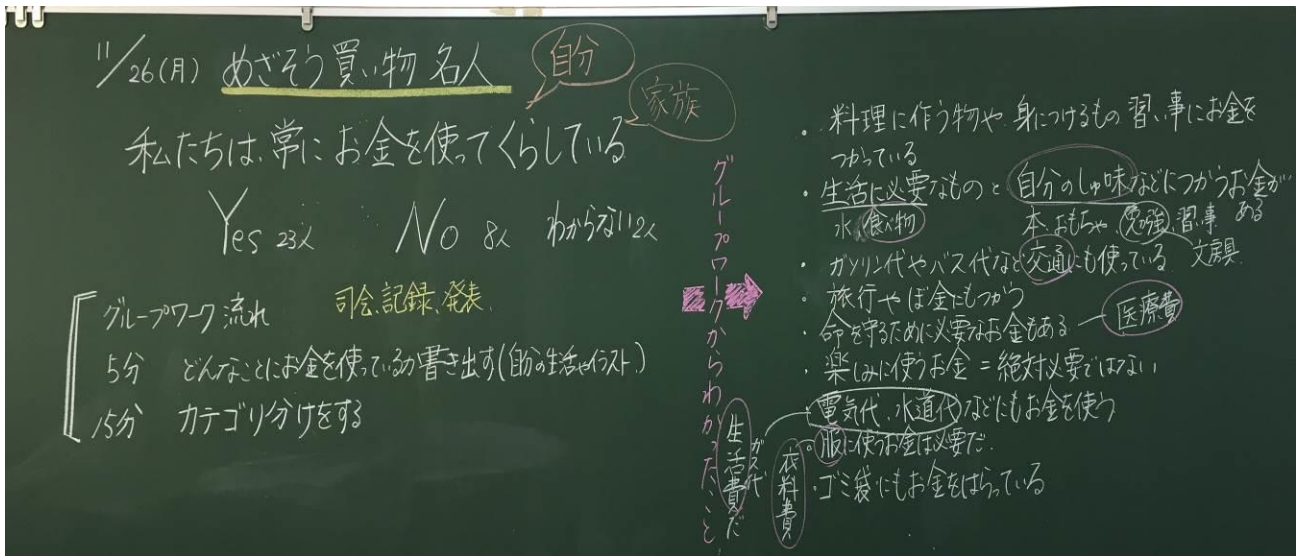 11/26(月) めざそう買い物名人
自分
家族
私たちは、常にお金を使ってくらしている
Yes 23人 No 8人 わからない2人
グループワーク流れ 司会、記録、発表
5分 どんなことにお金を使っているか書き出す(自分の生活やイラスト)
15分 カテゴリ分けをする
グループワークからわかったこと
・料理に作う物や身につけるもの習い事にお金を
つかっている
・生活に必要なものと自分のしゅ味などにつかうお金が
ある
水、食べ物 本、おもちゃ、勉強、習い事
文房具
・ガソリン代やバス代など交通にも使っている
・旅行やぼ金にもつかう
・命を守るために必要なお金もある
医療費
・楽しみに使うお金=絶対必要ではない
・電気代、水道代などにもお金を使う
ガス代
生活費だ
・服に使うお金は必要だ
衣料費
・ゴミ袋にもお金をはらっている